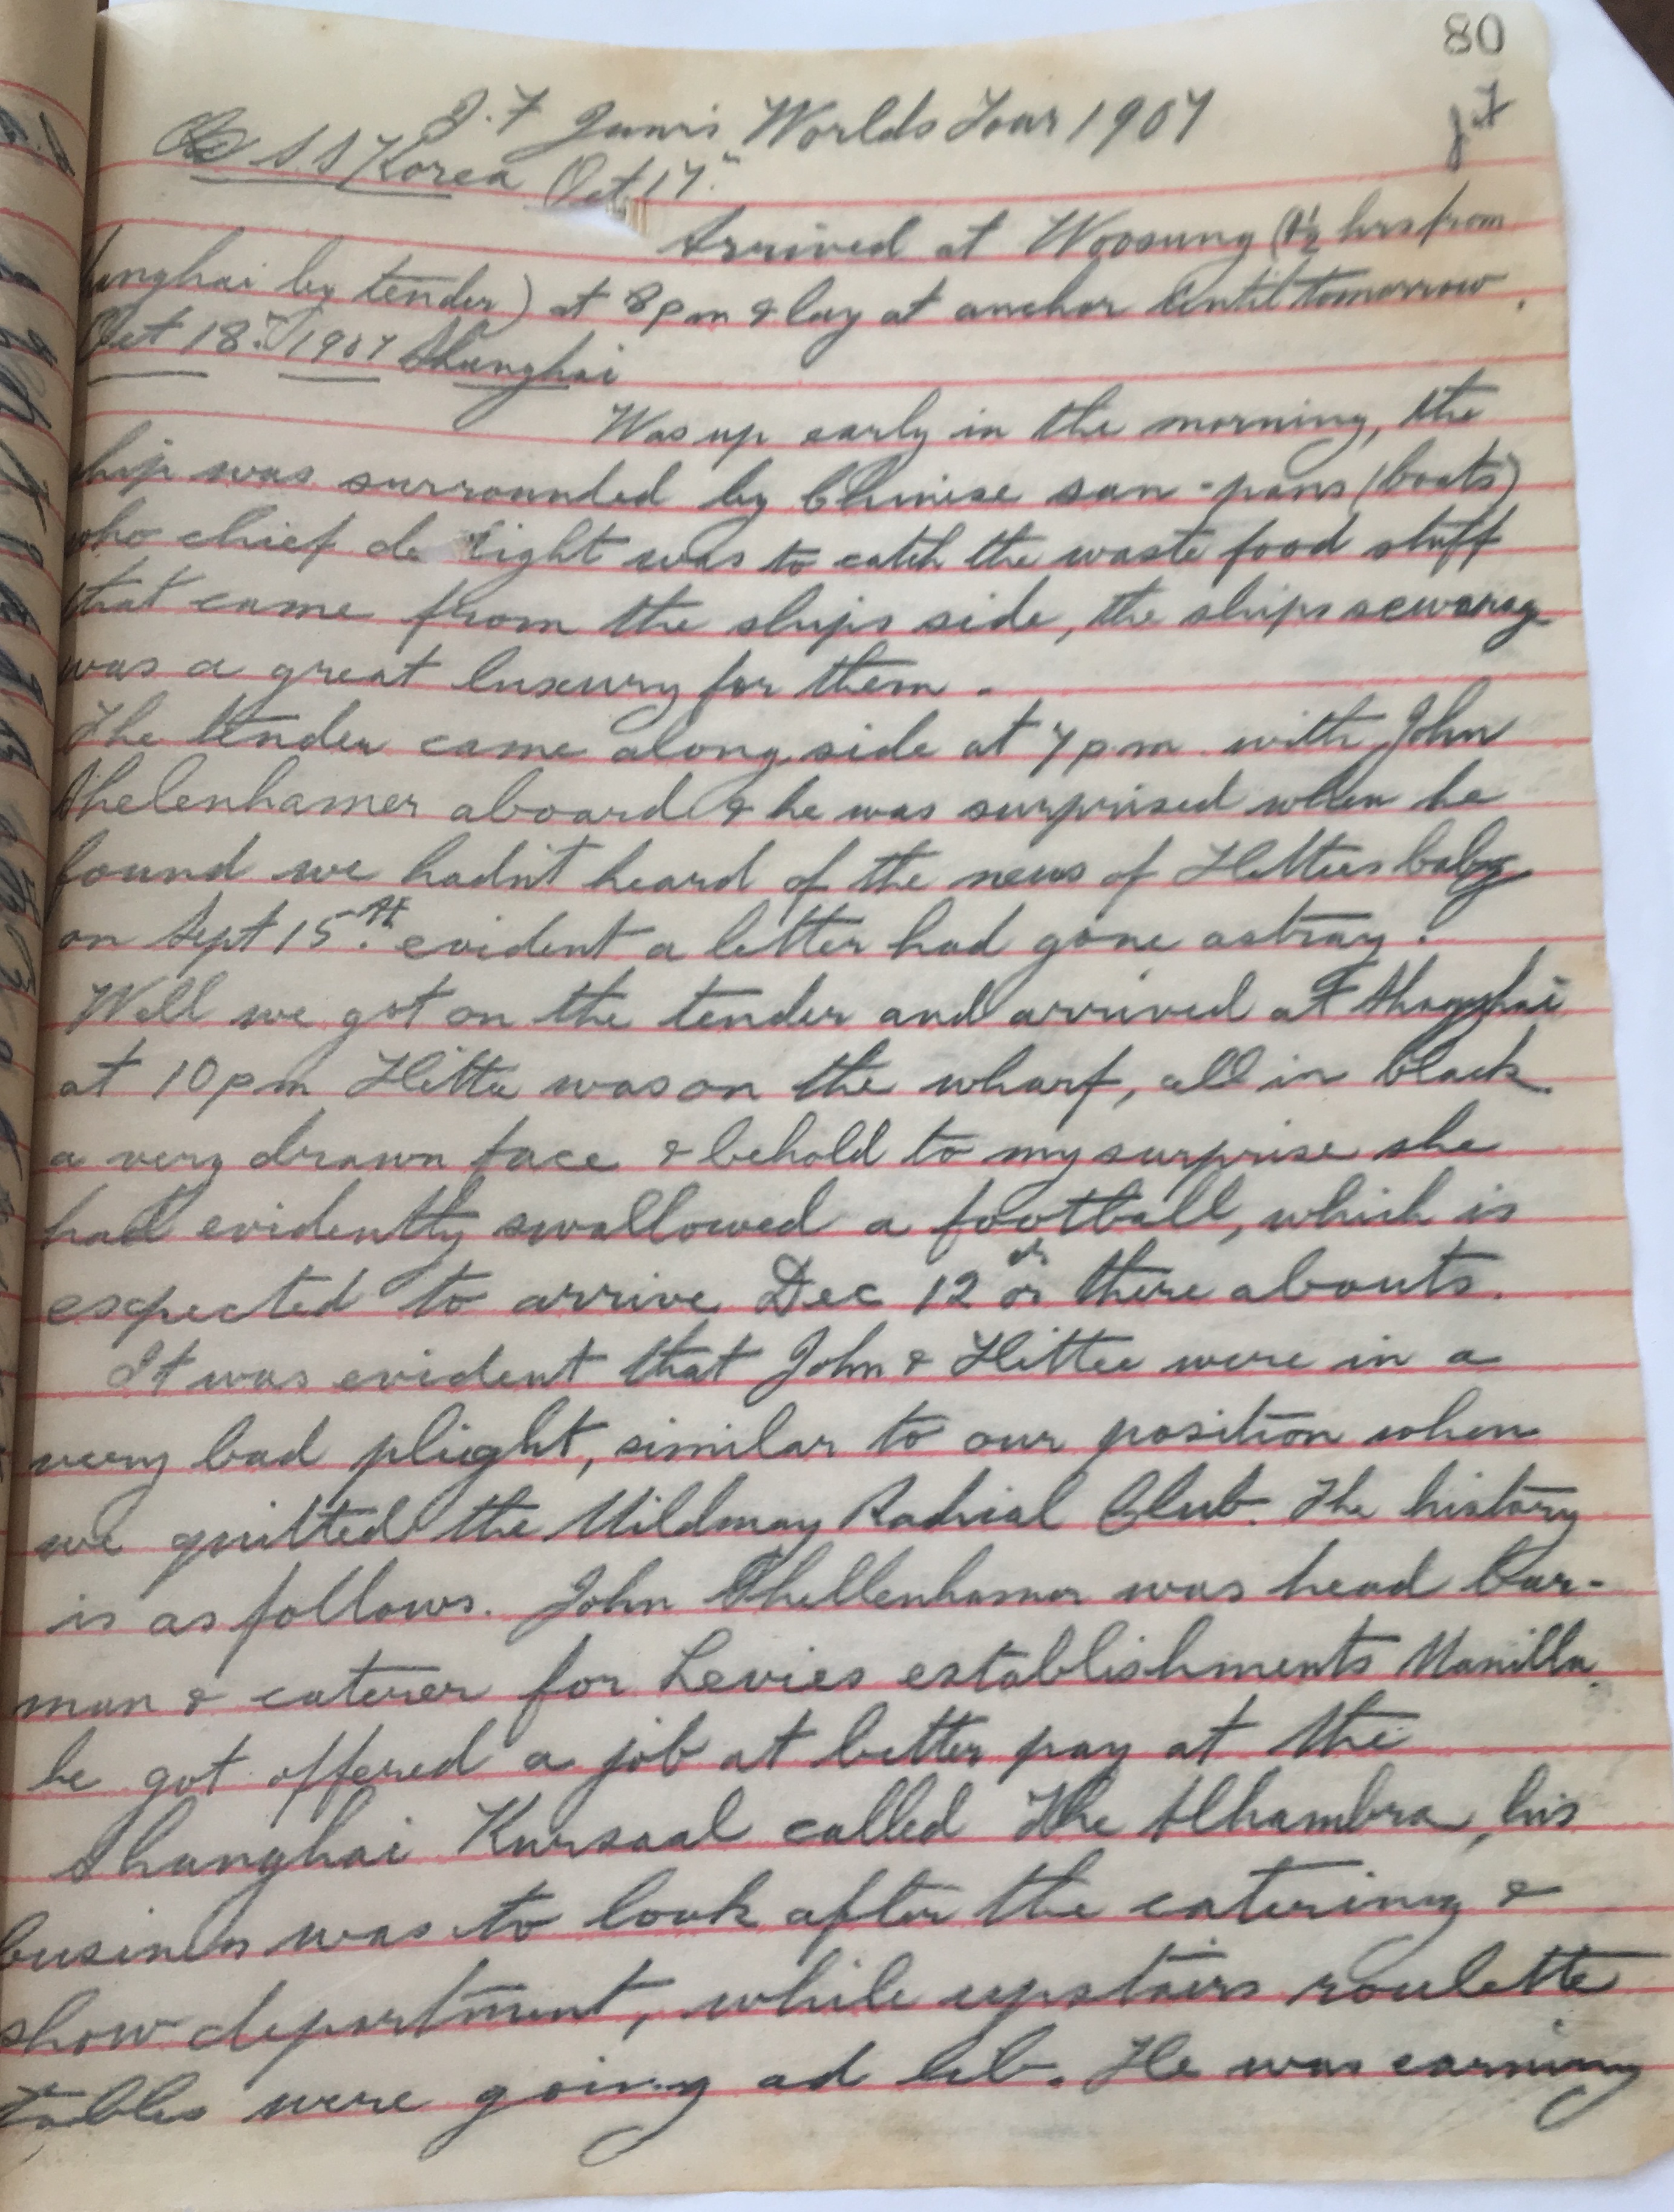 80
J.F. Jamis Worlds Tour 1907
J.F
S.S Korea Oct 17.th
Arrived at Woosung (1½ hrs from
hanghai by tender) at 8 pm & lay at anchor until tomorrow.
Oct 18.th 1907 Shanghai
Was up early in the morning, the
ship was surrounded by Chinese san-pans (boats)
who chief de light was to catch the waste food stuff
that came from the ships side, the ships sewarag
was a great luxury for them.
The tender came along side at 7 pm with John
Shelenhamer aboard & he was surprised when he
found we hadn't heard of the news of Hetties baby
on Sept 15th. evident a letter had gone astray.
Well we got on the tender and arrived at Shanghai
at 10 pm Hittie was on the wharf, all in black
a very drawn face & behold to my surprise she
had evidently swallowed a football, which is
expected to arrive Dec 12th or there abouts.
It was evident that John & Hittie were in a
very bad plight, similar to our position when
we quitted the Mildmay Radical Club. The history
is as follows. John Shellenhamer was head Bar-
man & caterer for Levies establishments Manilla
he got offered a job at better pay at the
Shanghai Kursaal called The Alhambra, his
business was to look after the catering &
show department, while upstairs roulette
tables were going ad lib. He was earning